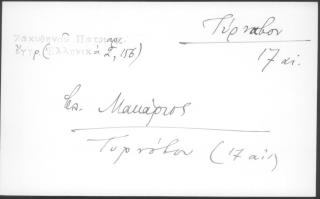 Ζακυθηνοῦ Πατριαρ.
ἔγγρ. (Ἑλληνικὰ 2, 156)
Τύρναβον
17 αἰ.
Ἐπ. Μακάριος
Τυρνάβου (17 αἰ.)